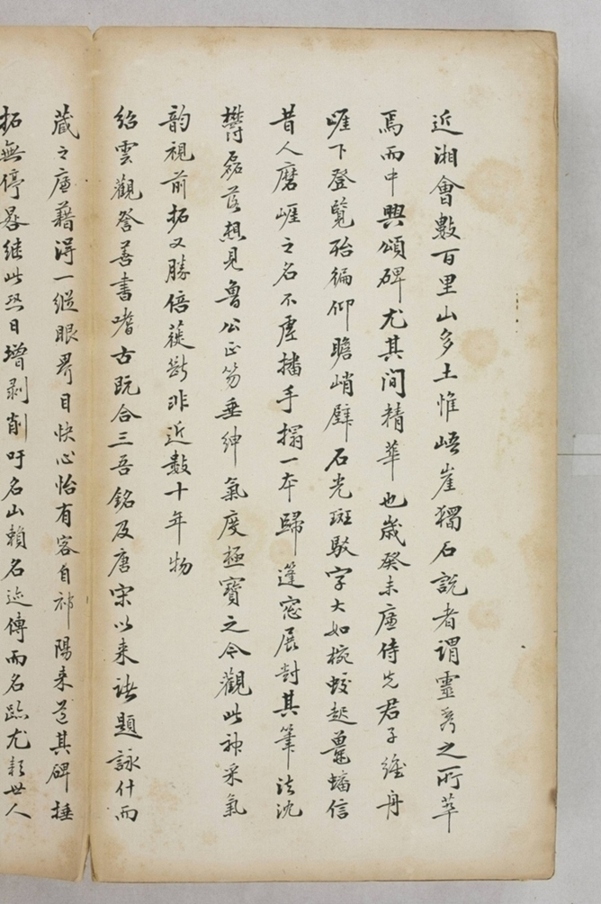 近湘會數百里山多土惟峿崖獨石說者謂靈秀之所萃
焉而中興頌碑尤其間精華也歲癸未廑侍先君子維舟
崕下登覽殆徧仰瞻峭壁石光斑駁字大如椀蛟起鼉蟠信
昔人磨崕之名不虛播手搨一本歸篷窓展對其筆法沈
欝磊落想見魯公正笏垂紳氣度極寶之今觀此神采氣
韵視前拓又勝倍蓰斷非近數十年物
紹雲觀詧善書嗜古既合三吾銘及唐宋以來諸題詠什而
藏之廑藉得一縱眼界目快心怡有客自祁陽来道其碑捶
拓無停晷继此恐日增剥削吁名山賴名迹傳而名蹟尤